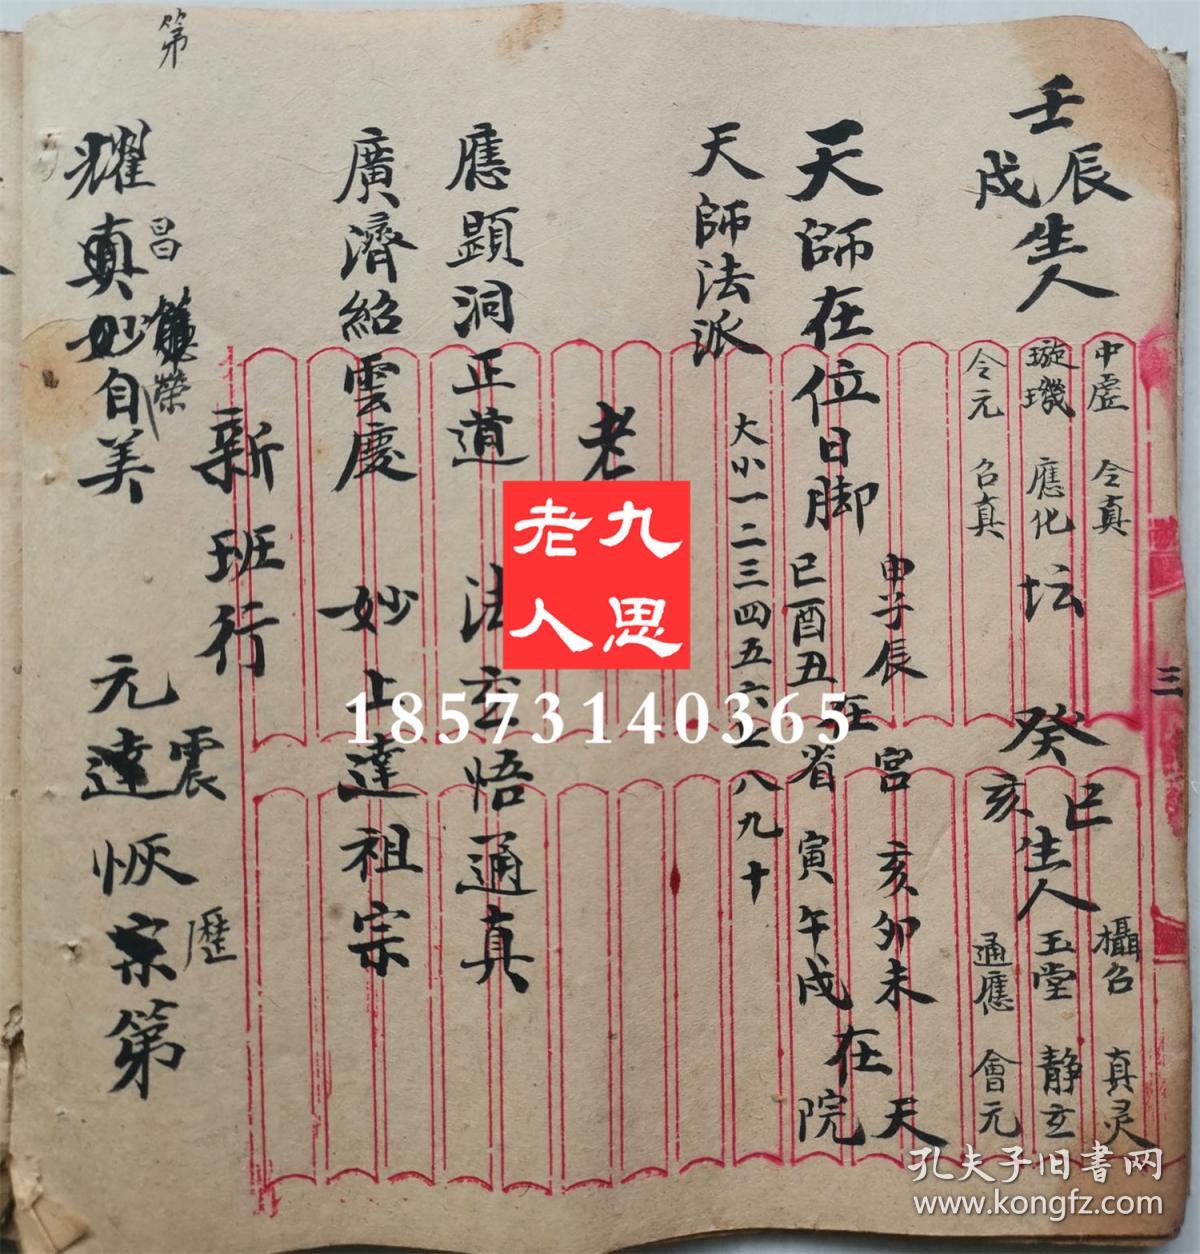 壬辰戌生人
中虛 令真
璇璣 應化 坛
令元 召真
癸巳亥生人
攝召 真灵
玉堂 静玄
通應 會元
天師在位日脚
申子辰在宮 亥卯未在天
巳酉丑在省 寅午戌在院
天師法派
大小一二三四五六七八九十
老
應顯洞正道 法玄悟通真
廣濟紹雲慶 妙上達祖宗
新班行
耀真妙自美 元達恢宗第
昌 榮 震 歷
第
三
九思老人
18573140365
孔夫子旧書网
www.kongfz.com